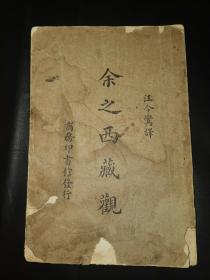 汪今鸞譯
余之西藏觀
商務印書館發行